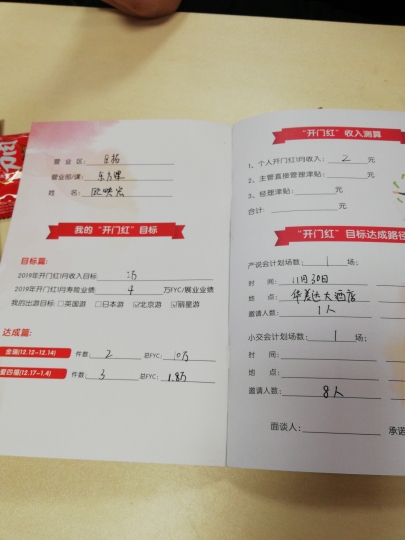 营 业 区:
营业部/课:
姓 名:
我的 "开门红" 目标
目标篇:
2019年开门红1月收入目标:
2019年开门红1月寿险业绩 4 万FYC/展业业绩
我的出游目标 □英国游 □日本游 ☑北京游 ☑丽星游
达成篇:
(12.12-12.14) 件数: 2 总FYC:
(12.17-1.4) 件数: 3 总FYC: 1.8万
"开门红" 收入测算
1、个人开门红1月收入: 2 元
2、主管直接管理津贴: 元
3、经理津贴: 元
合计: 元
"开门红" 目标达成路径
产说会计划场数: 1 场;
时 间: 11月30日
地 点: 华美达大酒店
邀请人数: 1人
小交会计划场数: 1 场;
时 间:
地 点:
邀请人数: 8人
面谈人: 承诺